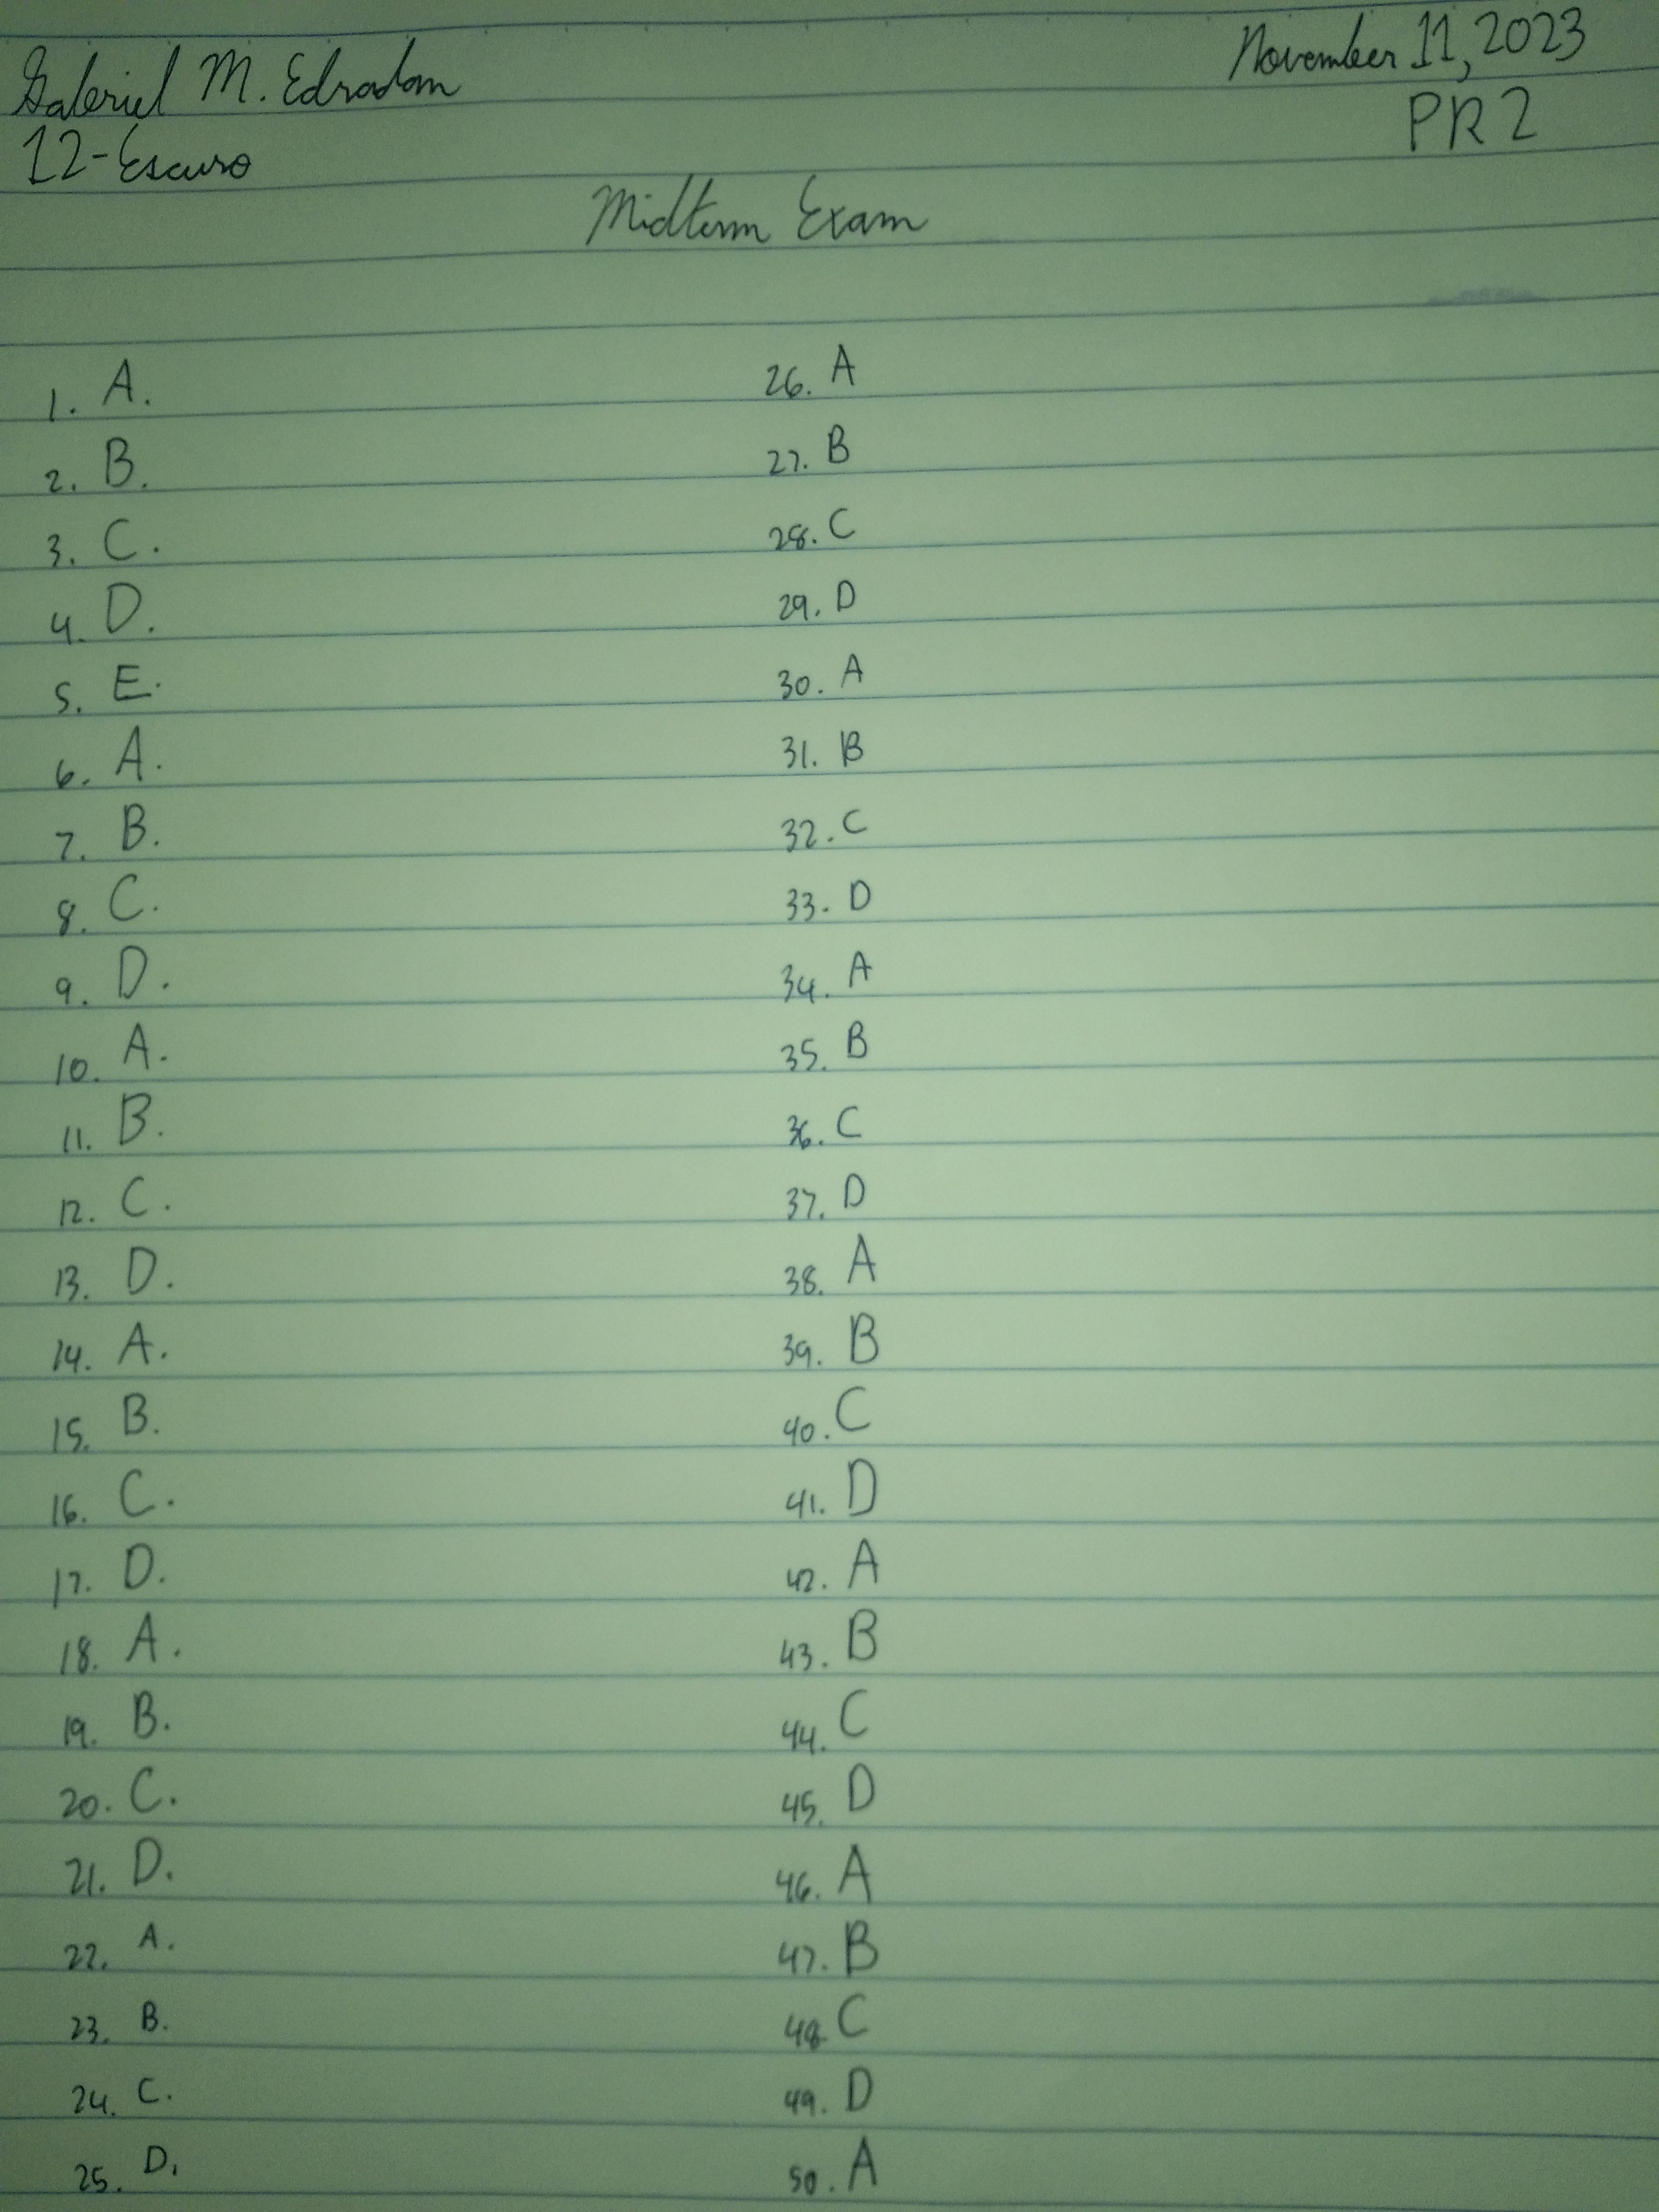 Gabriel M. Edradan
November 11, 2023
12-Escuro
PR 2
Midterm Exam
1. A.
2. B.
3. C.
4. D.
5. E.
6. A.
7. B.
8. C.
9. D.
10. A.
11. B.
12. C.
13. D.
14. A.
15. B.
16. C.
17. D.
18. A.
19. B.
20. C.
21. D.
22. A.
23. B.
24. C.
25. D.
26. A
27. B
28. C
29. D
30. A
31. B
32. C
33. D
34. A
35. B
36. C
37. D
38. A
39. B
40. C
41. D
42. A
43. B
44. C
45. D
46. A
47. B
48. C
49. D
50. A